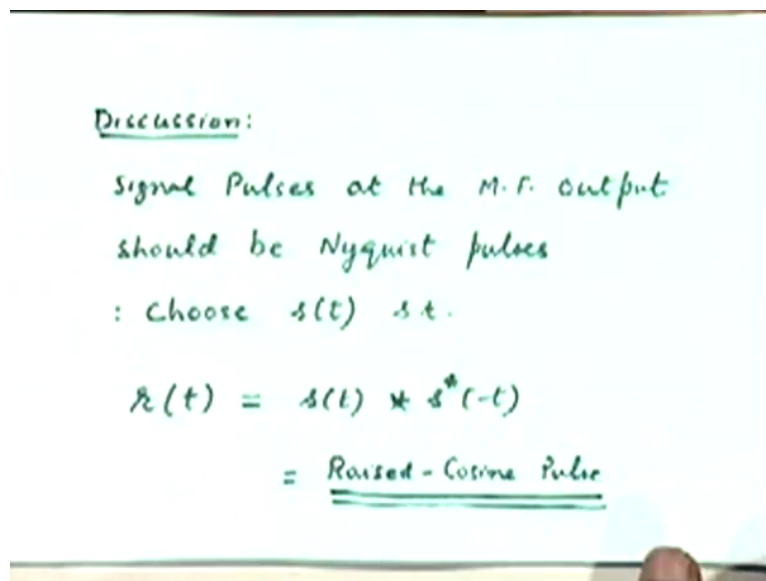 Discussion:
Signal Pulses at the M.F. output
should be Nyquist pulses
: Choose s(t) s.t.
r(t) = s(t) * s*(-t)
= Raised-Cosine Pulse